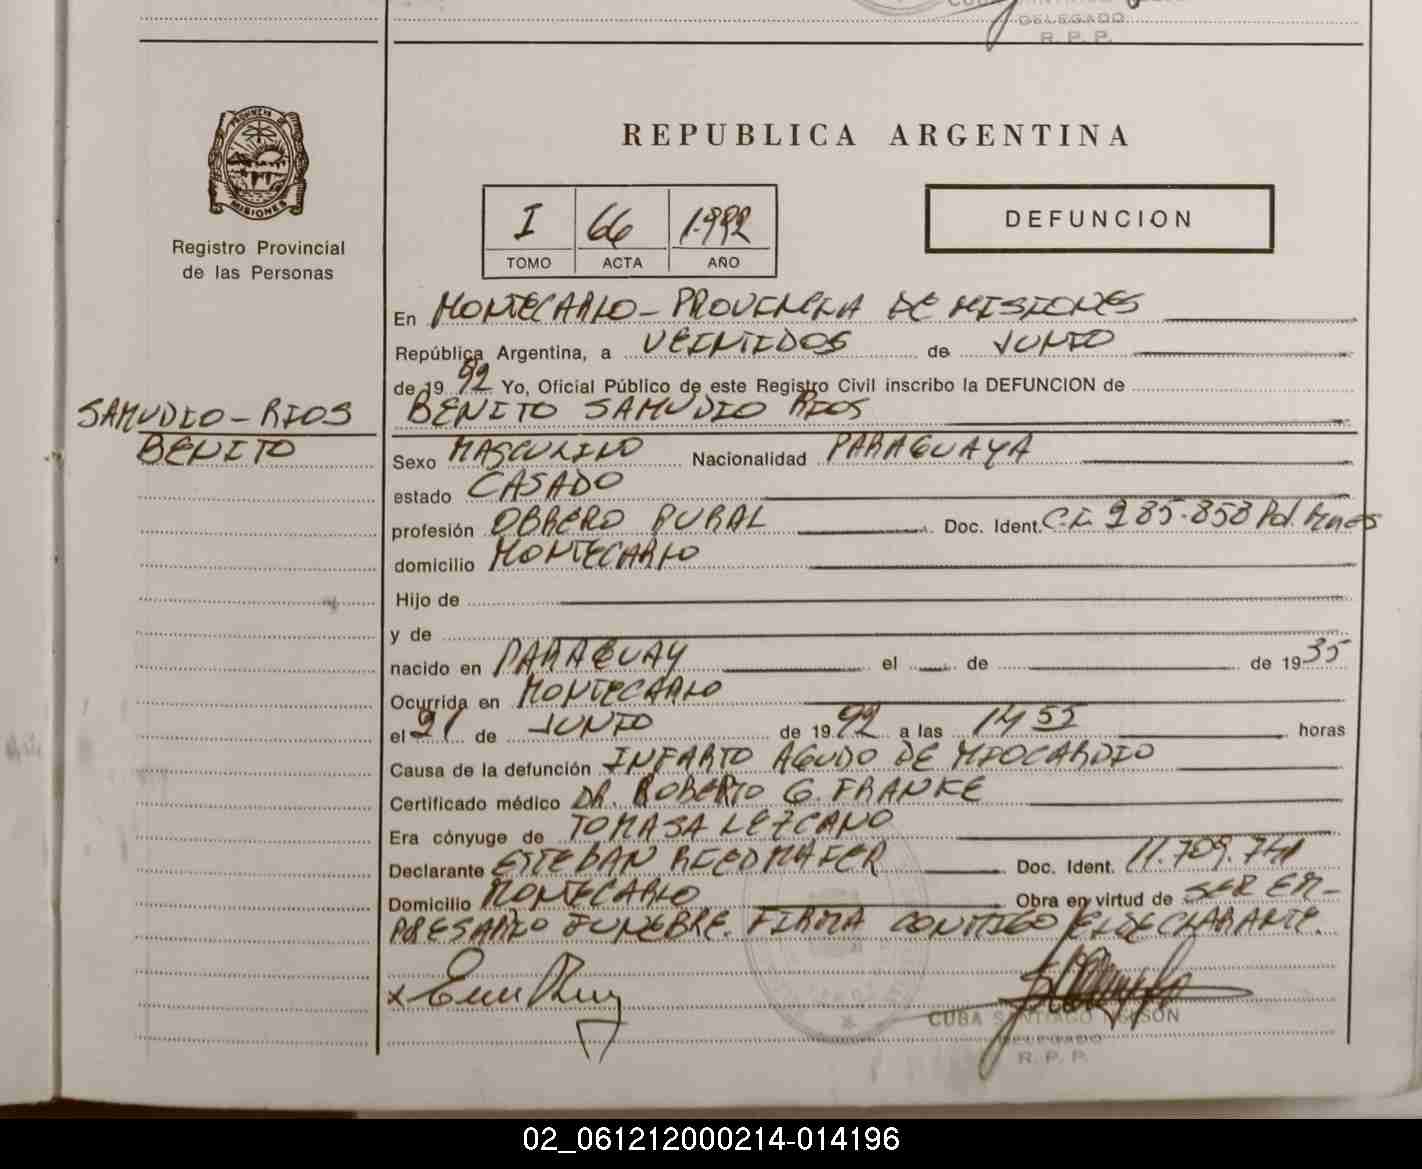 DELEGADO
R. P. P.
PROVINCIA DE
MISIONES
Registro Provincial
de las Personas
REPUBLICA ARGENTINA
I 66 1.992
TOMO ACTA AÑO
DEFUNCION
En MONTECARLO - PROVINCIA DE MISIONES
República Argentina, a VEINTIDOS de JUNIO
de 19 92 Yo, Oficial Público de este Registro Civil inscribo la DEFUNCION de
SAMUDIO - RIOS
BENITO
BENITO SAMUDIO RIOS
Sexo MASCULINO Nacionalidad PARAGUAYA
estado CASADO
profesión OBRERO RURAL Doc. Ident. C.I. 285.858 Pol. Mnes
domicilio MONTECARLO
Hijo de
y de
nacido en PARAGUAY el de de 19 35
Ocurrida en MONTECARLO
el 21 de JUNIO de 19 92 a las 14 55 horas
Causa de la defunción INFARTO AGUDO DE MIOCARDIO
Certificado médico DR. ROBERTO G. FRANKE
Era cónyuge de TOMASA LEZCANO
Declarante ESTEBAN RIEDMAIER Doc. Ident. 11.709.741
Domicilio MONTECARLO Obra en virtud de SER EM-
PRESARIO FUNEBRE. FIRMA CONMIGO EL DECLARANTE.
x
CUBA SANTIAGO
DELEGADO
R. P. P.
02_061212000214-014196